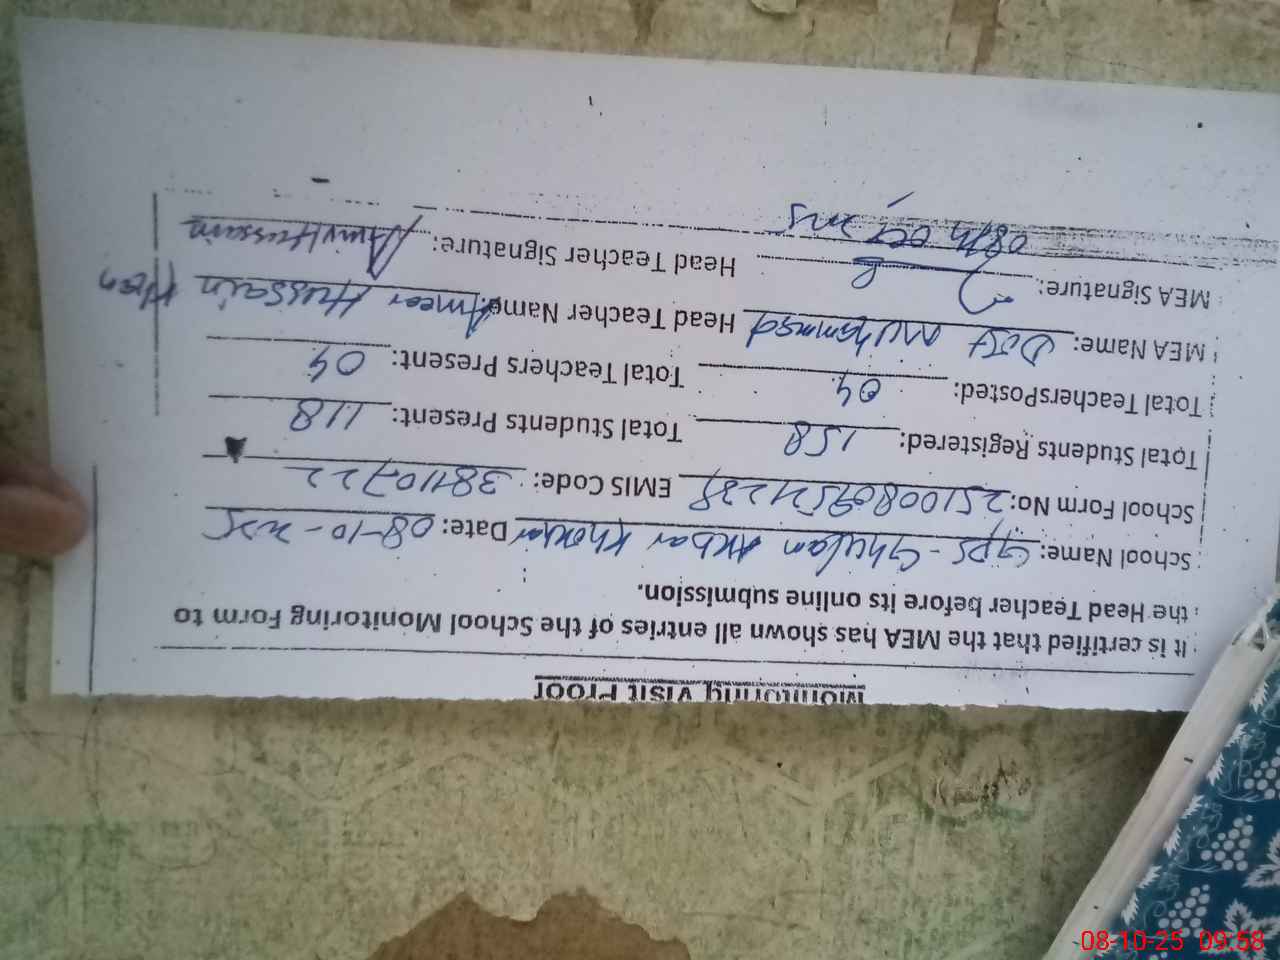 Monitoring Visit Proof
It is certified that the MEA has shown all entries of the School Monitoring Form to
the Head Teacher before its online submission.
School Name: GPS - Ghulam Akbar Khokhar Date: 08-10-2025
School Form No: EMIS Code: 38110722
Total Students Registered: 158 Total Students Present: 118
Total TeachersPosted: 04 Total Teachers Present: 04
MEA Name: Dost Muhammad Head Teacher Name: Ameer Hussain
MEA Signature: Head Teacher Signature: Amir Hussain
08th Oct, 2025
08-10-25 09:58